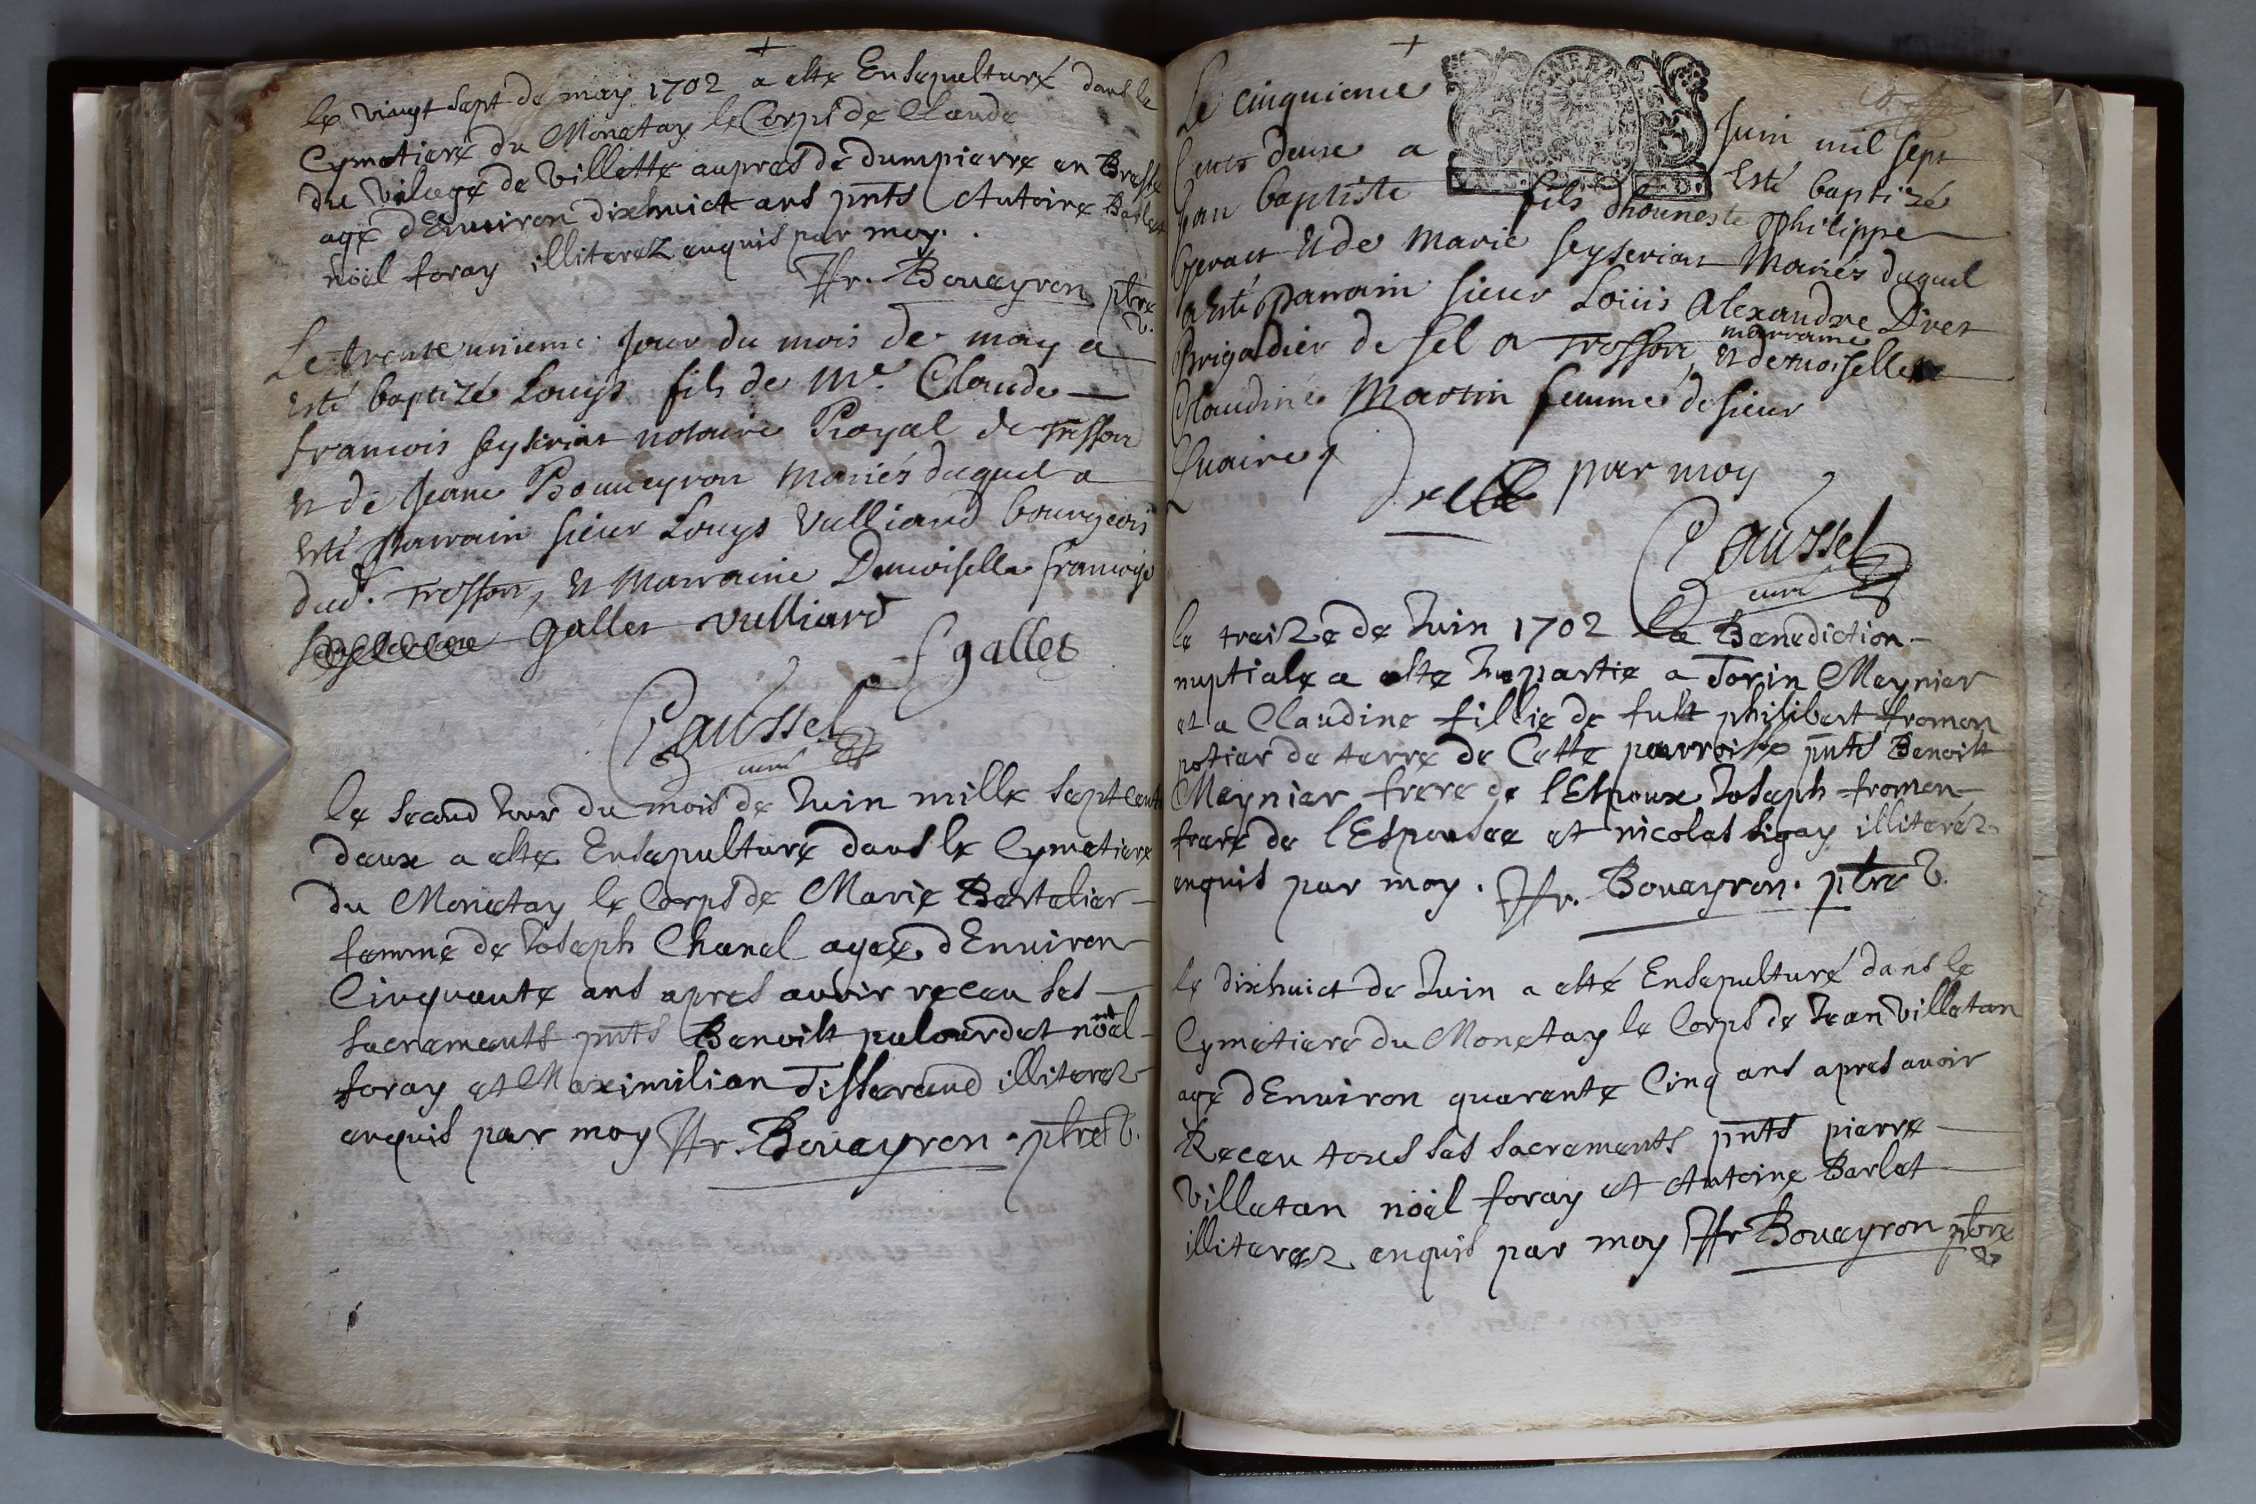 le vingt sept de may 1702 a esté Ensepulturé dans le
Cymetiere du Monetay le Corps de Claude
du vilage de Villette aupres de dumpierre en Bresse
agé dEnviron dixhuict ans pnts Antoine Barlet
noël foray illiterez enquis par moy.
Fr. Boueyron ptre v.
Le trente unieme jour du mois de may a
esté baptizé Louys fils de Me. Claude
francois seyserias notaire Royal de Treffort
et de jeane Boüueyron mariés duquel a
esté parrain sieur Louys Vulliard bourgeois
dud. Treffort, et marraine Demoiselle francoise
galles vulliard
f galles
Paussel
curé
le second Jour du mois de Juin mille sept cent
deux a esté Ensepulturé dans le Cymetiere
du Monetay le Corps de Marie Bertelier
femme de Joseph Chanel agee dEnviron
Cinquante ans apres avoir receu ses
sacrements pnts Benoist palourdet noël
foray et Maximilian Tisserand illiterez
enquis par moy Fr. Boueyron. ptre v.
Le cinquieme
Juin mil sept
cents deux a
Esté baptizé
Jean baptiste
fils dhouneste Philippe
et de Marie seyserias Mariés duquel
a esté parrain sieur Loüis Alexandre
Brigadier de sel a Treffort, et marraine demoiselle
Claudine Martin femme de sieur
par moy
Paussel
curé
le treize de Juin 1702 la Benediction
nuptiale a esté Impartie a Jorin Meynier
et a Claudine fillie de fust philibert fromon
potier de terre de Cette parroisse pnts Benoist
Meynier frere de lEspoux Joseph fromon
frere de lEspousee et nicolas sigay illiterez
enquis par moy. Fr. Boueyron. ptre v.
le dixhuict de Juin a esté Ensepulturé dans le
Cymetiere du Monetay le Corps de Jean Villetan
agé dEnviron quarente Cinq ans apres avoir
Receu tous ses sacrements pnts pierre
Villetan noël foray et Antoine Barlet
illiterez enquis par moy Fr Boueyron ptre
v